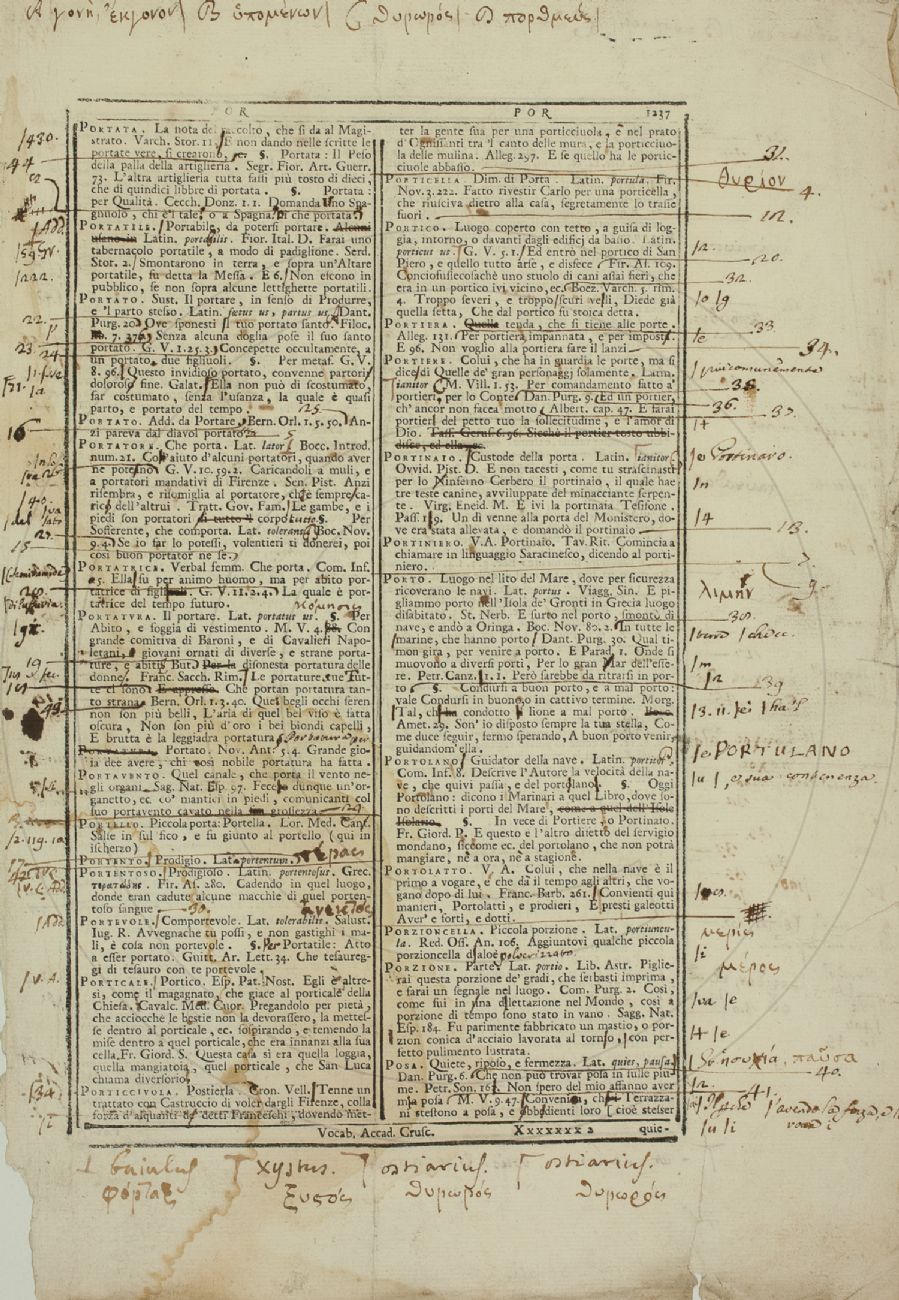 γονὴ, ἔκγονον ἑπομένων θυρωρός πορθμεύς
POR 1237
PORTATA. La nota del raccolto, che si da al Magi-
strato. Varch. Stor. 11. E non dando nelle scritte le
portate vere, si crearono, §. Portata: Il Peso
della palla della artiglieria. Segr. Fior. Art. Guerr.
73. L'altra artiglieria tutta fassi più tosto di dieci,
che di quindici libbre di portata. §. Portata:
per Qualità. Cecch. Donz. 1. 1. Domanda uno Spa-
gnuolo, chi e'l tale, o a Spagna: Di che portata?
PORTATILE. Portabile, da potersi portare.
Latin. portabilis. Fior. Ital. D. Farai uno
tabernacolo portatile, a modo di padiglione. Serd.
Stor. 2. Smontarono in terra, e sopra un'Altare
portatile, fu detta la Messa. E 6. Non escono in
pubblico, se non sopra alcune lettighette portatili.
PORTATO. Sust. Il portare, in senso di Produrre,
e 'l parto stesso. Latin. fœtus us, partus us. Dant.
Purg. 20. Ove sponesti il tuo portato santo. Filoc.
7. 376. Senza alcuna doglia pose il suo santo
portato. G. V. 1. 25. 3. Concepette occultamente, a
un portato, due figliuoli. §. Per metaf. G. V.
8. 96. Questo invidioso portato, convenne partorir
doloroso fine. Galat. Ella non può di scostumato,
far costumato, senza l'usanza, la quale è quasi
parto, e portato del tempo.
PORTATO. Add. da Portare. Bern. Orl. 1. 5. 50. An-
zi pareva dal diavol portato
PORTATORE. Che porta. Lat. lator. Bocc. Introd.
num. 21. Coll'aiuto d'alcuni portatori, quando aver
ne potesno. G. V. 10. 59. 2. Caricandoli a muli, e
a portatori mandativi di Firenze. Sen. Pist. Anzi
risembra, e risomiglia al portatore, che sempre ca-
rico dell'altrui. Tratt. Gov. Fam. Le gambe, e i
piedi son portatori di tutto il corpo tutto. §. Per
Sofferente, che comporta. Lat. tolerantis. Boc. Nov.
9. 4. Se io far lo potessi, volentieri ti donerei, poi
così buon portator ne se'.
PORTATRICE. Verbal femm. Che porta. Com. Inf.
25. Ella fu per animo huomo, ma per abito por-
tatrice di figliuoli. G. V. 11. 2. 4. La quale è por-
tatrice del tempo futuro.
PORTATURA. Il portare. Lat. portatus us. §. Per
Abito, e foggia di vestimento. M. V. 4. Con
grande comitiva di Baroni, e di Cavalieri Napo-
letani, e giovani ornati di diverse, e strane porta-
ture, e abiti. But. Per la disonesta portatura delle
donne. Franc. Sacch. Rim. Le portature, che tut-
te ci sono E appresso. Che portan portatura tan-
to strana. Bern. Orl. 1. 3. 40. Quei begli occhi seren
non son più belli, L'aria di quel bel viso è fatta
oscura, Non son più d'oro i bei biondi capelli,
E brutta è la leggiadra portatura.
PORTATURA. Portato. Nov. Ant. 5. 4. Grande gio-
ia dee avere, chi così nobile portatura ha fatta.
PORTAVENTO. Quel canale, che porta il vento ne-
gli organi. Sag. Nat. Esp. 97. Fecesi dunque un'or-
ganetto, ec. co' mantici in piedi, comunicanti col
suo portavento cavato nella sua grossezza.
PORTELLO. Piccola porta: Portella. Lor. Med. Canz.
Salie in sul fico, e fu giunto al portello (qui in
ischerzo)
PORTENTO. Prodigio. Lat. portentum. τέρας
PORTENTOSO. Prodigioso. Latin. portentosus. Grec.
τερατώδης. Fir. As. 280. Cadendo in quel luogo,
donde eran cadute alcune macchie di quel porten-
toso sangue
PORTEVOLE. Comportevole. Lat. tolerabilis. Salust.
Iug. R. Avvegnache tu possi, e non gastighi i ma-
li, è cosa non portevole. §. Per Portatile: Atto
a esser portato. Guitt. Ar. Lett. 34. Che tesaureg-
gi di tesauro con te portevole.
PORTICALE. Portico. Esp. Pat. Nost. Egli è altre-
sì, come il magagnato, che giace al porticale della
Chiesa. Cavalc. Med. Cuor. Pregandolo per pietà,
che acciocchè le bestie non la devorassero, la mettes-
se dentro al porticale, ec. sospirando, e temendo la
mise dentro a quel porticale, che era innanzi alla sua
cella. Fr. Giord. S. Questa casa si era quella loggia,
quella mangiatoia, quel porticale, che San Luca
chiama diversorio.
PORTICCIUOLA. Postierla. Cron. Vell. Tenne un
trattato con Castruccio di volei dargli Firenze, colla
forza d'alquanti de' detti Franceschi, dovendo met-
POR
ter la gente sua per una porticciuola, è nel prato
d'Ognissanti tra 'l canto delle mura, e la porticciuo-
la delle mulina. Alleg. 297. E se quello ha le portic-
ciuole abbasso.
PORTICELLA. Dim. di Porta. Latin. portula. Fir.
Nov. 3. 222. Fatto rivestir Carlo per una porticella,
che riusciva dietro alla casa, segretamente lo trasse
fuori.
PORTICO. Luogo coperto con tetto, a guisa di log-
gia, intorno, o davanti dagli edificj da basso. Latin.
porticus us. G. V. 5. 1. Ed entrò nel portico di San
Piero, e quello tutto arse, e disfece. Fir. As. 169.
Conciofussecosachè uno stuolo di cani assai fieri, che
era in un portico ivi vicino, ec. Boez. Varch. 5. rim.
4. Troppo severi, e troppo scuri vesli, Diede già
quella setta, Che dal portico fu stoica detta.
PORTIERA. Quella tenda, che si tiene alle porte.
Alleg. 131. Per portiera, impannata, e per imposte.
E 96. Non voglio alla portiera fare il lanzi
PORTIERE. Colui, che ha in guardia le porte, ma si
dice di Quelle de' gran personaggj solamente. Latin.
ianitor. M. Vill. 1. 53. Per comandamento fatto a'
portieri, per lo Conte. Dan. Purg. 9. Ed un portier,
ch'ancor non facea motto. Albert. cap. 47. E farai
portieri del petto tuo la sollecitudine, e l'amor di
Dio. Tass. Geruf. 6. 96. Sicchè il portier tosto ubbi-
disce, ed ella ec.
PORTINAIO. Custode della porta. Latin. ianitor.
Ovvid. Pist. D. E non tacesti, come tu strascinasti
per lo Ninferno Cerbero il portinaio, il quale hae
tre teste canine, avviluppate del minacciante serpen-
te. Virg. Eneid. M. E ivi la portinata Tesifone.
Pass. 119. Un dì venne alla porta del Monistero, do-
ve era stata allevata, e domandò il portinaio
PORTINIERO. V. A. Portinaio. Tav. Rit. Comincia a
chiamare in linguaggio Saracinesco, dicendo al porti-
niero.
PORTO. Luogo nel lito del Mare, dove per sicurezza
ricoverano le navi. Lat. portus. Viagg. Sin. E pi-
gliammo porto nell'Isola de' Gronti in Grecia luogo
disabitato. St. Nerb. E surto nel porto, smontò di
nave, e andò a Oringa. Boc. Nov. 80. 2. In tutte le
marine, che hanno porto. Dant. Purg. 30. Qual ti-
mon gira, per venire a porto. E Parad. 1. Onde si
muovono a diversi porti, Per lo gran Mar dell'esse-
re. Petr. Canz. 1. 1. Però sarebbe da ritrarsi in por-
to §. Condursi a buon porto, e a mal porto:
vale Condursi in buono, in cattivo termine. Morg.
Tal, che condotto il lione a mal porto.
Amet. 29. Son' io disposto sempre la tua stella, Co-
me duce seguir, fermo sperando, A buon porto venir,
guidandom'ella.
PORTOLANO. Guidator della nave. Latin.
Com. Inf. 8. Descrive l'Autore la velocità della na-
ve, che quivi passa, e del portolano. §. Oggi
Portolano: dicono i Marinari a quel Libro, dove so-
no descritti i porti del Mare, come a quel dell'Isole
Isolario. §. In vece di Portiere, o Portinaio.
Fr. Giord. P. E questo e l'altro difetto del servigio
mondano, siccome ec. del portolano, che non potrà
mangiare, nè a ora, nè a stagione.
PORTOLATTO. V. A. Colui, che nella nave è il
primo a vogare, e che dà il tempo agli altri, che vo-
gano dopo di lui. Franc. Barb. 261. Convienti qui
manieri, Portolati, e prodieri, E presti galeotti
Aver' e forti, e dotti.
PORZIONCELLA. Piccola porzione. Lat. portiuncu-
la. Red. Oss. An. 106. Aggiuntovi qualche piccola
porzioncella d'aloè polverizzato.
PORZIONE. Parte. Lat. portio. Lib. Astr. Piglie-
rai questa porzione de' gradi, che serbasti imprima,
e farai un segnale nel luogo. Com. Purg. 2. Così,
come sui in una dilettazione nel Mondo, così a
porzione di tempo sono stato in vano. Sagg. Nat.
Esp. 184. Fu parimente fabbricato un mastio, o por-
zion conica d'acciaio lavorata al tornio, con per-
fetto pulimento lustrata.
POSA. Quiete, riposo, e fermezza. Lat. quies, pausa.
Dan. Purg. 6. Che non può trovar posa in sulle piu-
me. Petr. Son. 163. Non spero del mio affanno aver
mia posa. M. V. 9. 47. Convenio, che i Terrazza-
ni stessono a posa, e ubbidienti loro (cioè stesser
Vocab. Accad. Crusc. Xxxxxxx 2 quie-
31.
θυρίον
4.
20.
32.
33
34.
più comunemente
36.
Portinaro.
13.
λιμήν
39
PORTULANO
μερίς
μέρος
παῦσα
40.
41.
baiulus xystus. ostiarius. ostiarius.
φόρταξ ξυστός θυρωρός θυρωρός